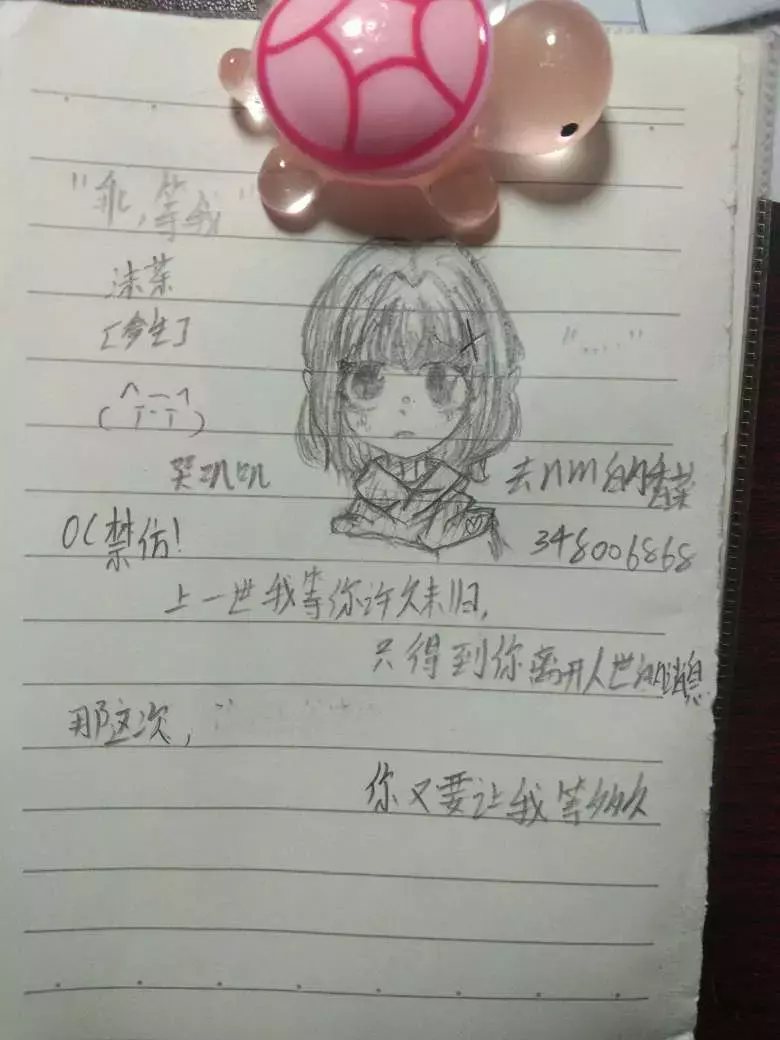 "乖,等我"
沫茶
[今生]
"....."
(T-T)
哭叽叽
去nm的香菜
OC禁仿!
348006868
上一世我等你许久未归,
只得到你离开人世的消息
那这次,
你又要让我等多久